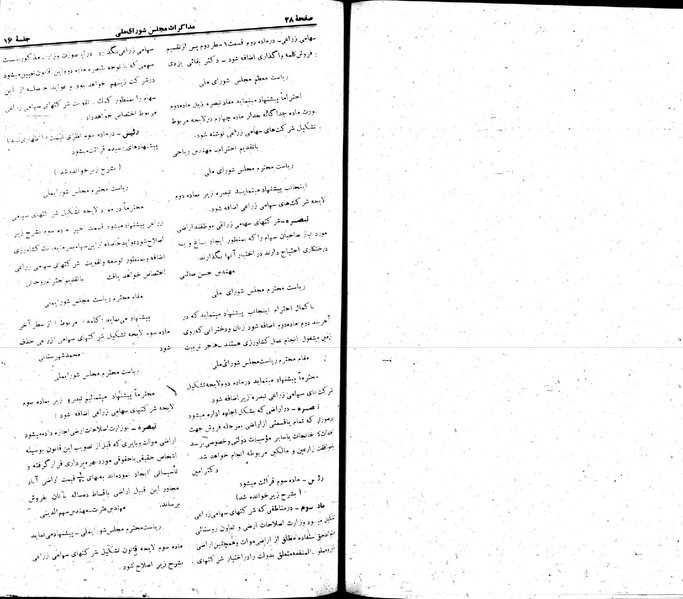 صفحهٔ ۳۸
مذاکرات مجلس شورای ملی
جلسهٔ ۱۶
سهامی زراعی - در ماده دوم قسمت ۱ سطر دوم پس از تقسیم
و فروش کلمه واگذاری اضافه شود - دکتر بقائی یزدی
ریاست معظم مجلس شورای ملی
احتراماً پیشنهاد مینماید مفاد تبصره ذیل ماده دوم
بصورت ماده جداگانه بعد از ماده چهارم در لایحه مربوط
به تشکیل شرکت‌های سهامی زراعی نوشته شود.
با تقدیم احترام - مهندس ریاحی
ریاست محترم مجلس شورای ملی
اینجانب پیشنهاد مینماید تبصره زیر بماده دوم
لایحه شرکت‌های سهامی زراعی اضافه شود.
تبصره - شرکتهای سهامی زراعی موظفند اراضی
مورد نیاز صاحبان سهام را که بمنظور ایجاد باغ و به
درختکاری احتیاج دارند در اختیار آنها بگذارند.
مهندس حسن صائبی
ریاست محترم مجلس شورای ملی
با کمال احترام اینجانب پیشنهاد مینماید که در
آخر بند دوم ماده دوم اضافه شود زنان و دخترانی که روی
زمین مشغول انجام عمل کشاورزی هستند
مقام محترم ریاست مجلس شورای ملی
محترماً پیشنهاد مینماید در ماده دوم لایحه تشکیل
شرکت‌های سهامی زراعی تبصره زیر اضافه شود.
تبصره - در اراضی که بشکل اجاره اداره میشود
در صورتی که تمام یا قسمتی از اراضی بمرحله فروش جهت
احداث کارخانجات یا سایر مؤسسات دولتی و خصوصی برسد
با موافقت زارعین و مالکین مربوطه انجام خواهد شد.
دکتر امین
رئیس - ماده سوم قرائت میشود
(بشرح زیر خوانده شد)
ماده سوم - در مناطقی که شرکتهای سهامی زراعی
تشکیل میشود وزارت اصلاحات ارضی و تعاون روستائی
استفاده مطلق از اراضی موات و همچنین اراضی
متعلق بدولت را در اختیار شرکتهای
سهامی زراعی میگذارد در این صورت وزارت مذکور نسبت
سهمی که با توجه بتبصره ماده دوم این قانون تعیین میشود
در شرکت ذیسهم خواهد بود و عواید حاصله از این
سهام را بمنظور کمک و تقویت شرکتهای سهامی زراعی
مربوط اختصاص خواهد داد.
رئیس - در ماده سوم نظری نیست؟ (اظهاری نشد)
پیشنهادهای رسیده قرائت میشود
(بشرح زیر خوانده شد)
ریاست محترم مجلس شورایملی
محترماً در مورد لایحه تشکیل شرکتهای سهامی
زراعی پیشنهاد میشود قسمت اخیر ماده سوم بشرح زیر
اصلاح شود
اضافه و بمنظور توسعه و تقویت شرکتهای سهامی زراعی
اختصاص خواهد یافت با تقدیم احترام
مقام محترم ریاست مجلس شورایملی
پیشنهاد می‌نماید: کلمه (مربوط) از سطر آخر
ماده سوم لایحه تشکیل شرکتهای سهامی زراعی حذف
شود محمد شهرستانی
ریاست محترم مجلس شورایملی
محترماً پیشنهاد مینمائیم تبصره زیر بماده سوم
لایحه شرکتهای سهامی زراعی اضافه شود:
تبصره - بوزارت اصلاحات ارضی اجازه داده میشود
اراضی موات و بایری که قبل از تصویب این قانون بوسیله
اشخاص حقیقی یا حقوقی مورد بهره‌برداری قرار گرفته و
تأسیساتی ایجاد نموده‌اند ببهای قیمت اراضی آباد
مجاور این قبیل اراضی باقساط ده‌ساله بآنان بفروش
برساند. مهندس عترت - مهندس سهم‌الدینی
ریاست محترم مجلس شورایملی - پیشنهاد می‌نماید
ماده سوم لایحه قانون تشکیل شرکتهای سهامی زراعی
بشرح زیر اصلاح شود.